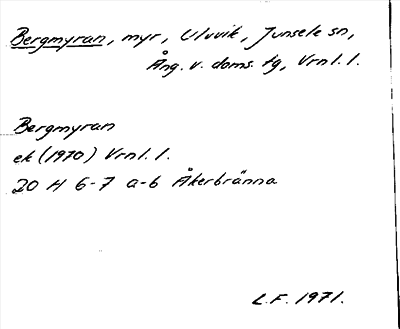 Bergmyran, myr, Uluvik, Junsele sn,
Ång. v. doms. tg, Vrnl. l.
Bergmyran
ek (1970) Vrnl. l.
20 H 6-7 a-b Åkerbränna
L.F. 1971.